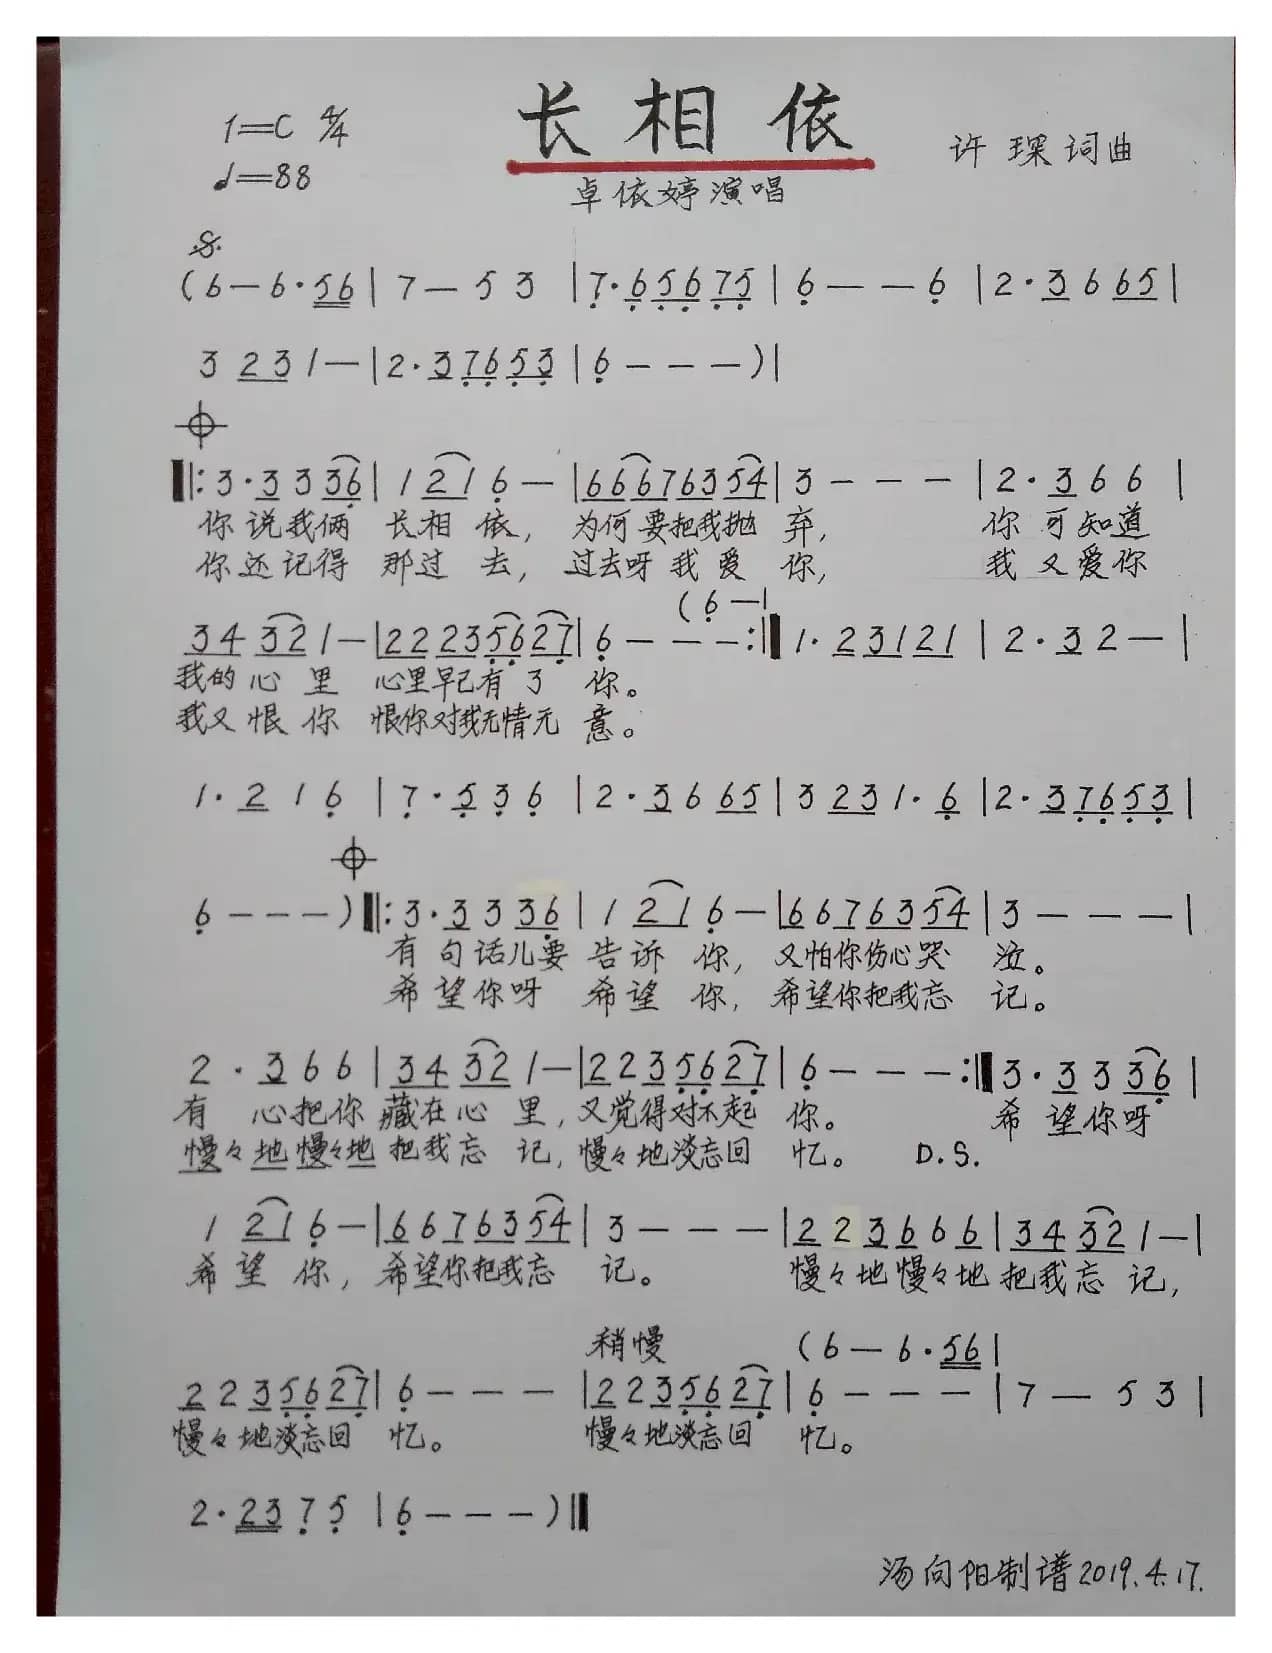 长相依
1=C 4/4
许琛词曲
♩=88
卓依婷演唱
(6 — 6·56 | 7 — 5 3 | 7·65675 | 6 — — 6 | 2·3 6 65 |
3 23 1 — | 2·37653 | 6 — — — ) |
‖: 3·3 3 36 | 1 21 6 — | 66676354 | 3 — — — | 2·3 6 6 |
你说我俩 长相 依, 为何要把我抛 弃, 你可知道
你还记得 那过 去, 过去呀我爱 你, 我又爱你
(6 — |
34 32 1 — | 22235627 | 6 — — — :‖ 1·23121 | 2·3 2 — |
我的心里 心里早已有了 你。
我又恨你 恨你对我无情无 意。
1·2 1 6 | 7·5 3 6 | 2·3 6 65 | 3 23 1·6 | 2·37653 |
6 — — — ) ‖: 3·3 3 36 | 1 21 6 — | 6676354 | 3 — — — |
有句话儿要 告诉 你, 又怕你伤心哭 泣。
希望你呀 希望 你, 希望你把我忘 记。
2·3 6 6 | 34 32 1 — | 2235627 | 6 — — — :‖ 3·3 3 36 |
有心把你藏在心里, 又觉得对不起 你。 希望你呀
慢々地慢々地把我忘记, 慢々地淡忘回 忆。 D.S.
1 21 6 — | 6676354 | 3 — — — | 2 2 3 6 6 6 | 34 32 1 — |
希望 你, 希望你把我忘 记。 慢々地慢々地把我忘记,
稍慢 (6 — 6·56 |
2235627 | 6 — — — | 2235627 | 6 — — — | 7 — 5 3 |
慢々地淡忘回 忆。 慢々地淡忘回 忆。
2·23 7 5 | 6 — — — ) ‖
汤向阳制谱2019.4.17.